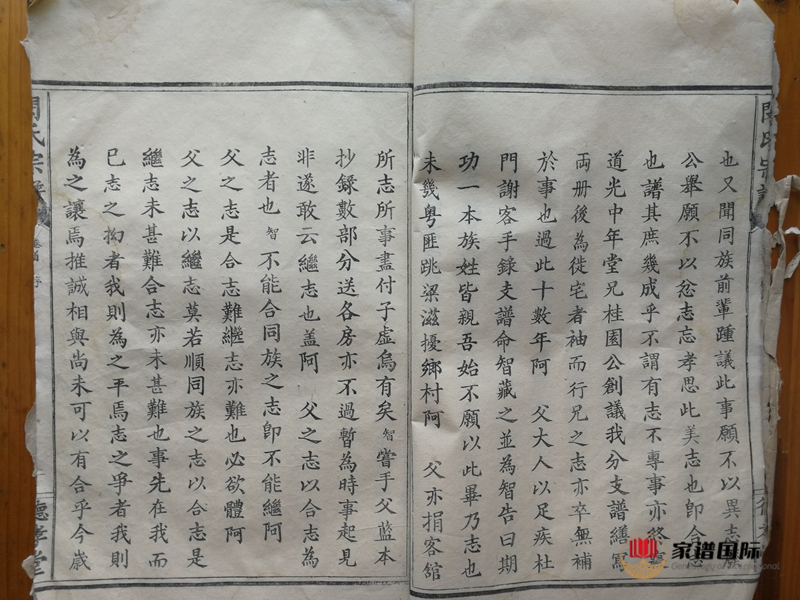 也又聞同族前輩踵議此事願不以異志
公舉願不以忿志忘孝思此美志也即合志
也譜其庶幾成乎不謂有志不專事亦終
道光中年堂兄桂園公創議我分支譜繕寫
兩册後為徙宅者袖而行兄之志亦卒無補
於事也過此十數年阿　父大人以足疾杜
門謝客手錄支譜命智藏之並為智告曰期
功一本族姓皆親吾始不願以此畢乃志也
未幾粤匪跳梁滋擾鄉村阿　父亦捐客舘
所志所事盡付子虛烏有矣智嘗手父藍本
抄錄數部分送各房亦不過暫為時事起見
非遂敢云繼志也盖阿　父之志以合志為
志者也智不能合同族之志卽不能繼阿
父之志是合志難繼志亦難也必欲體阿
父之志以繼志莫若順同族之志以合志是
繼志未甚難合志亦未甚難也事先在我而
已志之拘者我則為之平焉志之爭者我則
為之讓焉推誠相與尚未可以有合乎今歲
氏宗譜
德孝堂
家谱国际